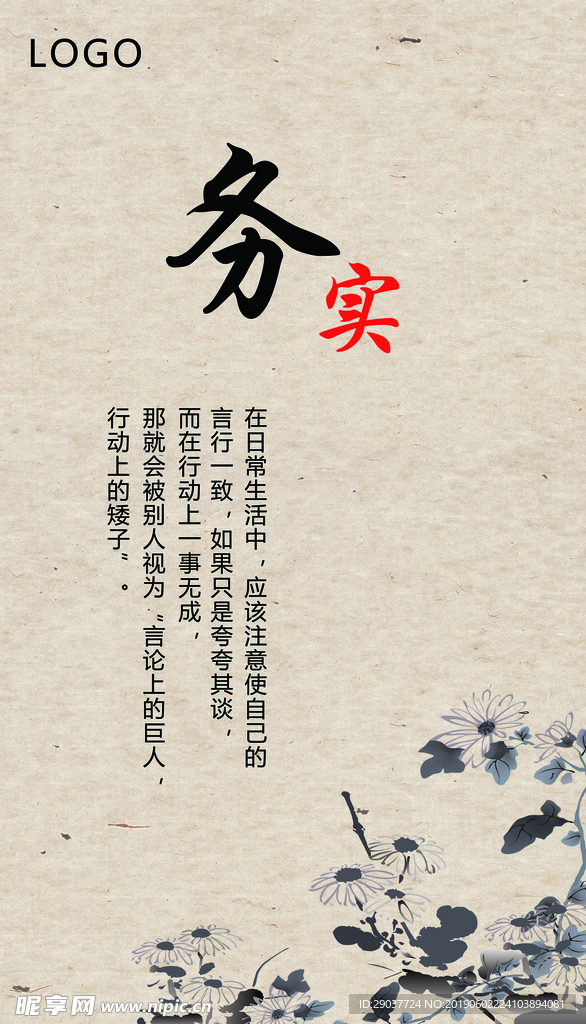 LOGO
务
实
在日常生活中，应该注意使自己的
言行一致，如果只是夸夸其谈，
而在行动上一事无成，
那就会被别人视为“言论上的巨人，
行动上的矮子”。
昵享网 www.nipic.cn
ID:29037724 NO:20190602224103894081